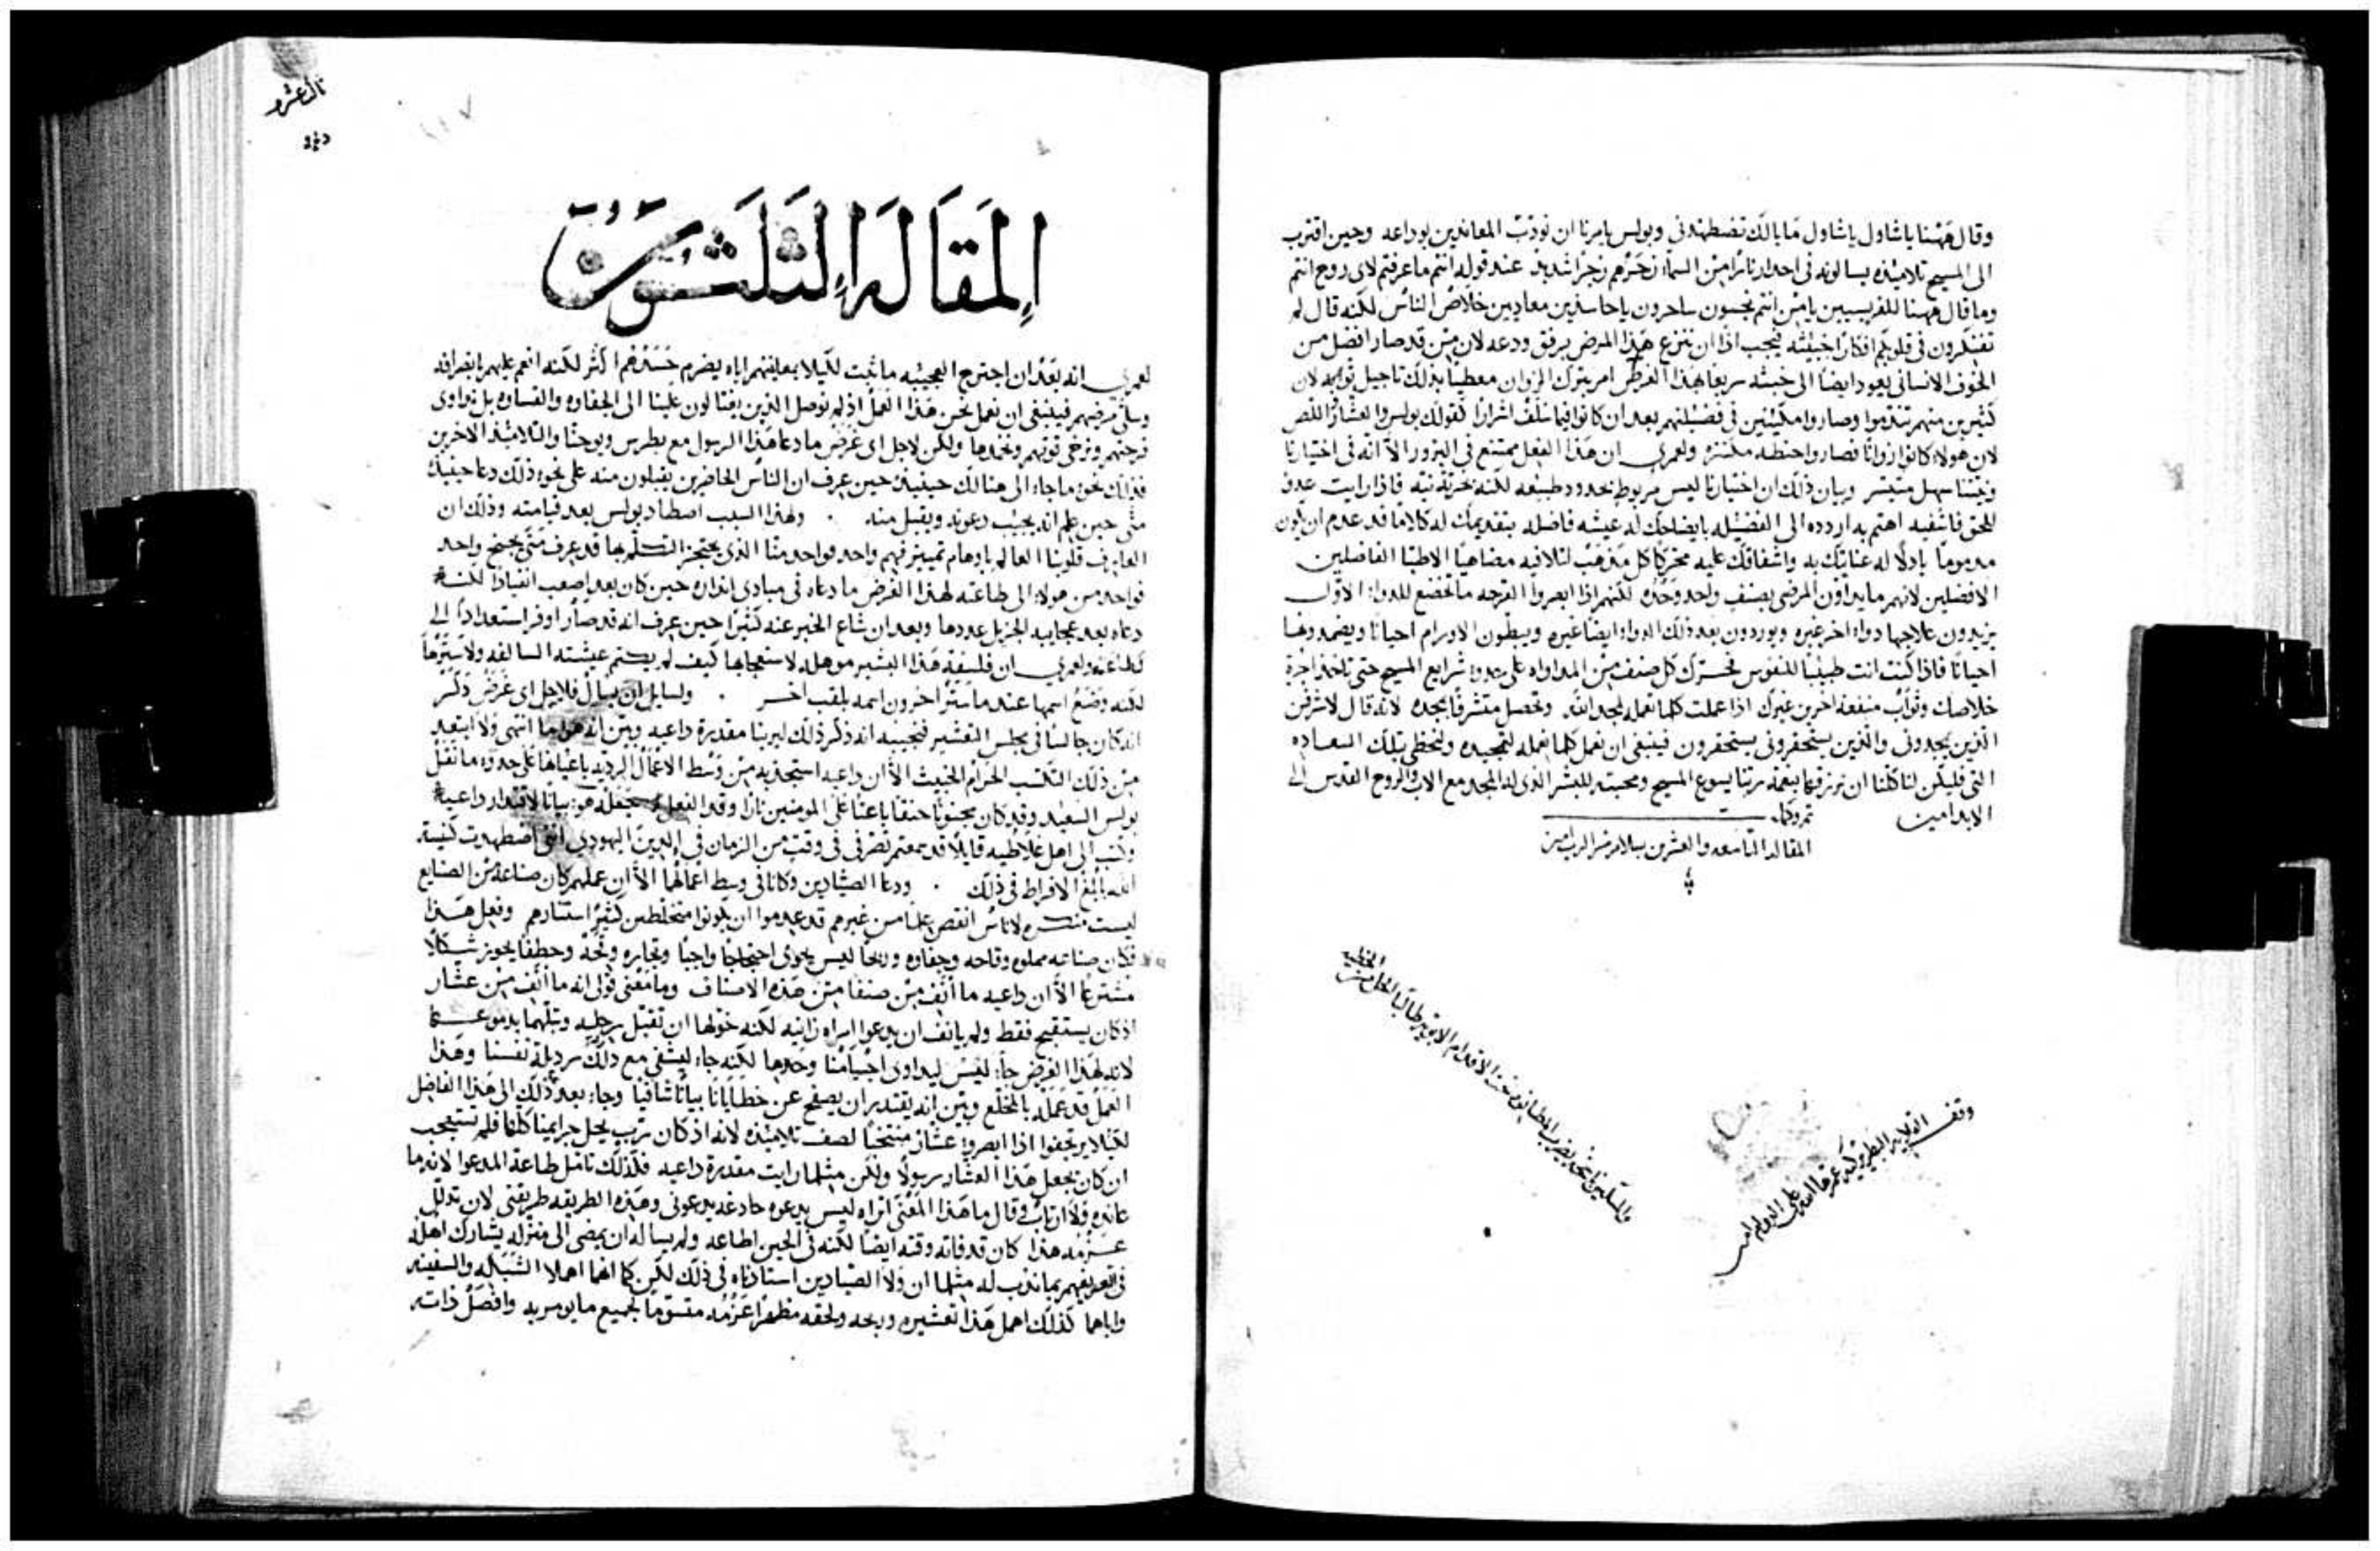 وقال ههنا ياشاول ياشاول ما بالك تضطهدني وبولس يامرنا ان نودّب المعاندين بوداعه وحين اقترب
الى المسيح تلاميذه يسالونه في احدار نار من السماء زجرهم زجرا شديدا عند قوله انتم ما عرفتم لاي روح انتم
وما قال ههنا للفريسيين يامن انتم نجسون ساحرون ياحاسدين معاديين خلاص الناس لكنه قال لم
تفتكرون في قلوبكم افكارا خبيثه فيجب اذا ان ننزع هذا المرض برفق ودعه لان من قد صار افضل من
الخوف الانساني يعود ايضا الى خبثه سريعا لهذا الغرض امر بترك الزوان معطيا بذلك تاجيل توبه لان
كثيرين منهم تندموا وصاروا مكينين في فضيلتهم بعد ان كانوا فيما سلف اشرارا كقولك بولس والعشار واللص
لان هولاء كانوا زوانا فصاروا حنطه مكتنزه ولعمري ان هذا الفعل ممتنع في البزور الا انه في اختيارنا
ونيتنا سهل متيسر وبيان ذلك ان اختيارنا ليس مربوط بحدود طبيعه لكنه بحرية نيه فاذا رايت عدو
للحق فاشفيه اهتم به اردده الى الفضيله بايضاحك له عيشه فاضله بتقديمك له كلاما قد عدم ان يكون
مذموما باذلا له عنايتك به واشفاقك عليه محركا كل مذهب لتلافيه مضاهيا الاطبا الفاضلين
الافضلين لانهم ما يداوون المرضى بصنف واحد وحده لكنهم اذا ابصروا القرحه ما تخضع للدواء الاول
يزيدون علاجها دواء اخر غيره ويوردون بعد ذلك الدواء ايضا غيره ويبطون الاورام احيانا ويضمدونها
احيانا فاذا كنت انت طبيبا للنفوس فحرك كل صنف من المداواه على حدود شرايع المسيح حتى تاخذ اجرة
خلاصك وثواب منفعة اخرين غيرك اذا عملت كلما تعمله لمجد الله وتحصل متشرفا بمجده لانه قال لاشرفن
الذين يمجدوني والذين يستحقروني يستحقرون فينبغي ان نعمل كلما نعمله لتمجيده ولنحظى بتلك السعاده
التي فليكن لنا كلنا ان نرزقها بنعمة ربنا يسوع المسيح ومحبته للبشر الذي له المجد مع الاب والروح القدس الى
الابد امين تم وكمل
المقاله التاسعه والعشرين بسلام من الرب امين
وقف القلايه البطريركيه عمرها الله على الدوام امين
المقالة الثلثون
لعمري انه بعد ان اجترح العجيبه ما ثبت لكيلا بمعاينتهم اياه يضرم حسدهم اكثر لكنه انعم عليهم بانصرافه
وسلّى مرضهم فينبغي ان نعمل نحن هذا العمل اذ لم نوصل الذين يغتالون علينا الى الجفاوه والقساوه بل نداوي
قرحتهم ونرخي قوتهم ونخمدها ولكن لاجل اي غرض ما دعا هذا الرسول مع بطرس ويوحنا والتلاميذ الاخرين
فذلك نحوه ما جاء الى هنالك حينيذ حين عرف ان الناس الحاضرين يقبلون منه على نحوه ذلك دعا حينيذ
متى حين علم انه يجيب دعوته ويقبل منه ولهذا السبب اصطاد بولس بعد قيامته وذلك ان
العارف قلوبنا العالم باوهام تمييز فهم واحد فواحد منا الذي يحتجز التسلم بها قد عرف متى يجنح واحد
فواحد من هولاء الى طاعته لهذا الغرض ما دعاه في مبادي انذاره حين كان بعد اصعب انقيادا لكنه
دعاه بعد عجايبه الجزيل عددها وبعد ان شاع الخبر عنه كثيرا حين عرف انه قد صار اوفر استعدادا الى
طاعته ولعمري ان فلسفة هذا البشير موهله لاستعجابها كيف لم يكتم عيشته السالفه ولا سترها
لكنه وضع اسمها عند ما ستر اخرون اسمه بلقب اخر ولسايل ان يسال فلاجل اي غرض ذكر
انه كان جالسا في مجلس التعشير فنجيبه انه ذكر ذلك ليرينا مقدرة داعيه وبين انه هو ما انتهى ولا ابتعد
من ذلك التكسب الحرام الخبيث الا ان داعيه استجذبه من وسط الاعمال الرديه باعيانها على حدوه ما نقل
بولس السعيد وقد كان مجنونا حنقا باعثا على المومنين نارا وقد الفعل جعله هو بيانا لاقتدار داعيه
وكتب الى اهل غلاطيه قايلا قد سمعتم تصرفي في وقت من الزمان في الدين اليهودي انني اضطهدت كنيسة
الله بابلغ الافراط في ذلك ودعا الصيادين وكانا في وسط اعمالهما الا ان عملهم كان صناعة من الصنايع
ليست لاناس انقص علما من غيرهم قد عدموا ان يكونوا مختلطين كثيرا استتارهم وفعل هذا
فكان صناعه مملوه وقاحه وجفاوه وربحا ليس يحوى احتجاجا واجبا وتجاره وقحه وخطفا يحوز شكلا
مشترعا الا ان داعيه ما انف من صنفا من هذه الاصناف وما معنى قولي انه ما انف من عشار
اذ كان يستقبح فقط ولم يانف ان يدعوا امراه زانيه لكنه خولها ان تقبل رجليه وتبلهما بدموعها
لانه لهذا الغرض جاء ليس ليداوي اجسامنا وحدها لكنه جاء ليشفي مع ذلك رديلة نفسنا وهذا
العمل قد عمله بالمخلع وبين انه يقتدر ان يصفح عن خطايانا بيانا شافيا وجاء بعد ذلك الى هذا الفاضل
لكيلا يرتجفوا اذا ابصروا عشار منتخبا لصف تلاميذه لانه اذ كان رب يحل جرايمنا كلها فلم تستعجب
ان كان يجعل هذا العشار رسولا ولكن مثلما رايت مقدرة داعيه فكذلك تامل طاعة المدعوا لانه ما
عانده ولا ارتاب وقال ما هذا المعنى اتراه ليس يدعوه خادعه يدعوني وهذه الطريقه طريقتي لان تذلل
عزمه هذا كان قد فاته وقته ايضا لكنه في الحين اطاعه ولم يساله ان يمضى الى منزله يشارك اهله
في تعريفهم بما ندب له مثلما ان ولا الصيادين استاذناه في ذلك لكن كما انهما اهملا الشبكه والسفينه
واباهما كذلك اهمل هذا تعشيره وربحه ولحقه مظهرا عزمه مقوما لجميع ما يومر به وافصل ذاته